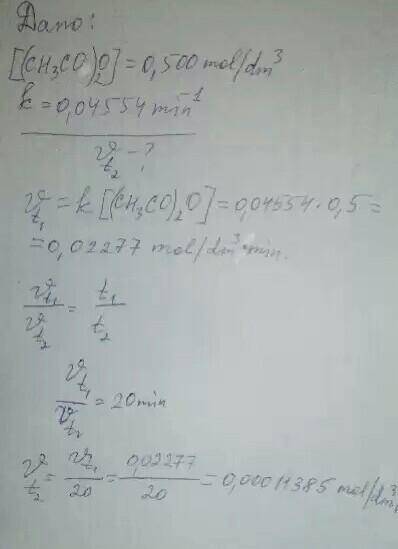 Дано:
[(CH₃CO)₂O] = 0,500 mol/dm³
k = 0,04554 min⁻¹
ϑt₂ - ?
ϑt₁ = k [(CH₃CO)₂O] = 0,04554 · 0,5 =
= 0,02277 mol/dm³·min.
ϑt₁/ϑt₂ = t₁/t₂
ϑt₁/ϑt₂ = 20 min
ϑt₂ = ϑt₁/20 = 0,02277/20 = 0,00011385 mol/dm³